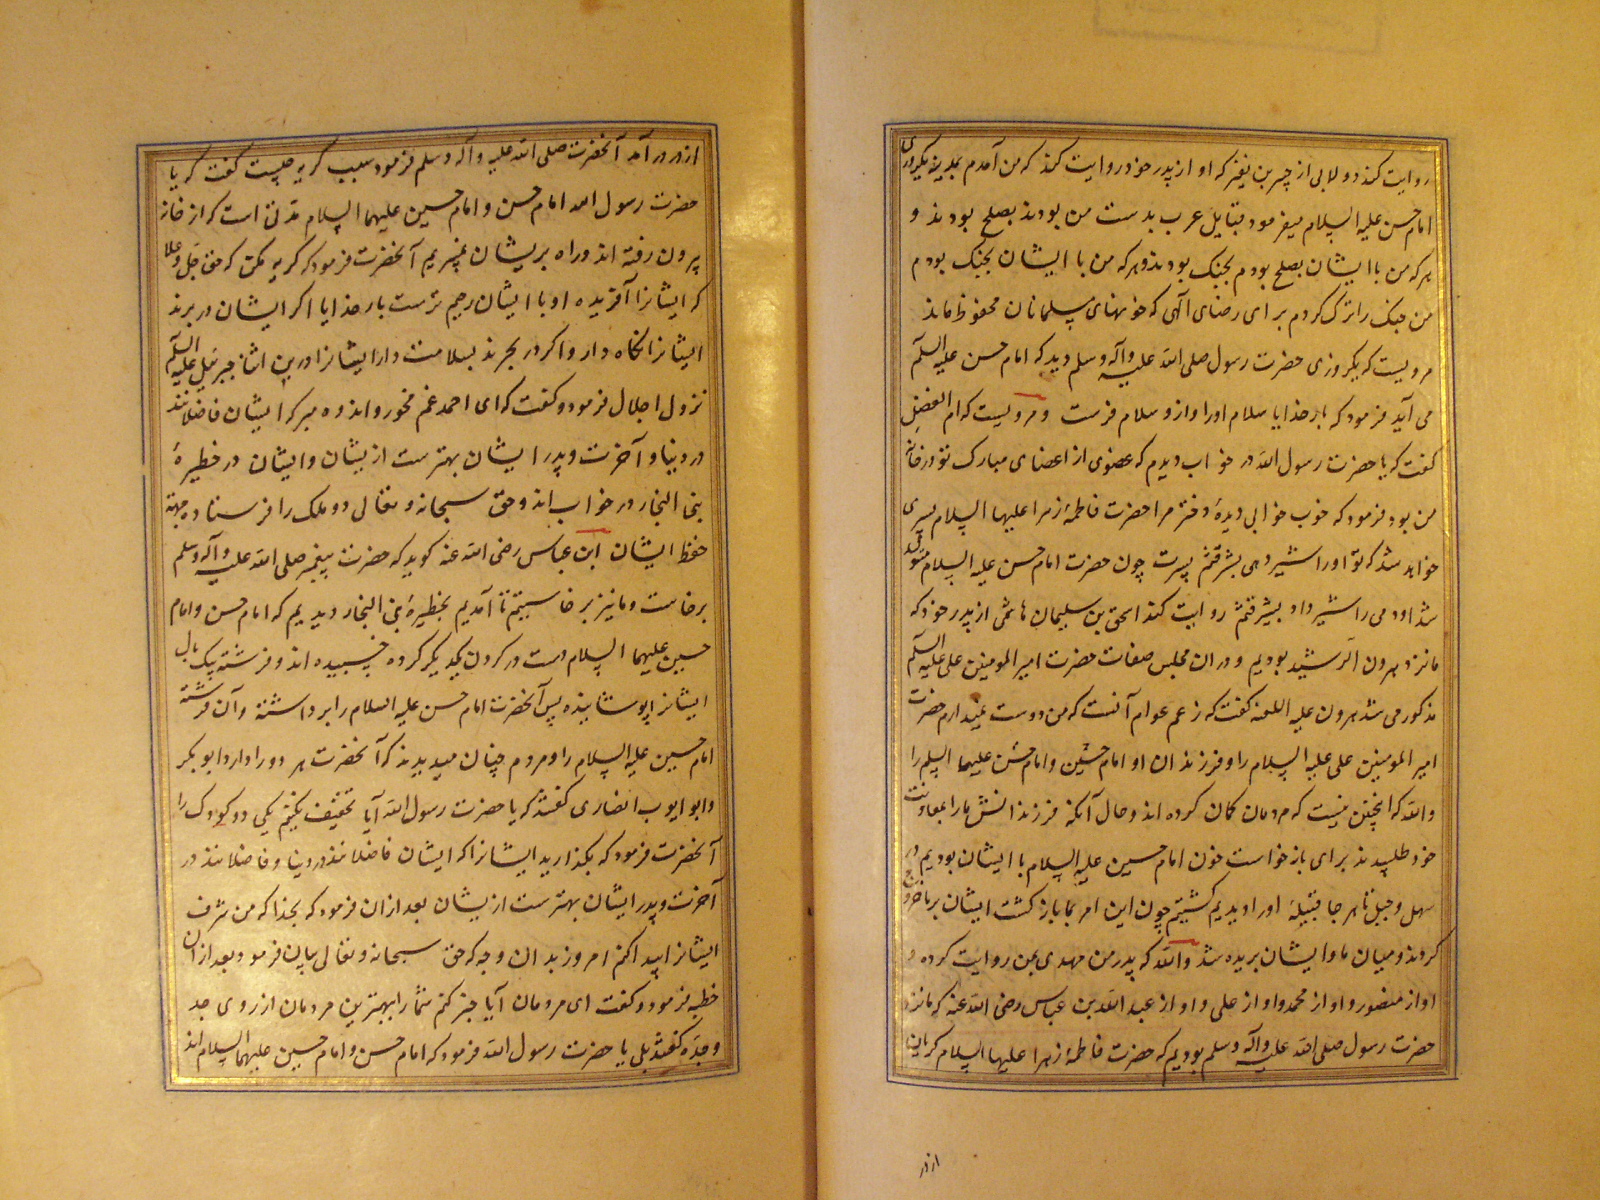 روایت کند دولابی از جبیر بن نفیر که او از پدر خود روایت کند که من آمدم بمدینه یکروزی
امام حسن علیه السلام میفرمود قبایل عرب بدست من بودند بصلح بودند و
هر که من با ایشان بصلح بودم بجنک بودند و هر که من با ایشان بجنک بودم
من جنک را ترک کردم برای رضای الهی که خونهای مسلمانان محفوظ ماند
مرویست که یکروزی حضرت رسول صلی الله علیه وآله وسلم دید که امام حسن علیه السلام
می آید فرمود که بار خدایا سلام او را و از و سلام فرست و مرویست که ام الفضل
کفت که یا حضرت رسول الله در خواب دیدم که عضوی از اعضای مبارک تو در خانه
من بود فرمود که خوب خوابی دیدهٔ دختر مرا حضرت فاطمهٔ زهرا علیها السلام پسری
خواهد شد که تو او را شیر دهی بشیر قثم پسرت چون حضرت امام حسن علیه السلام متولد
شد او می را شیر داد بشیر قثم روایت کند اسحق بن سلیمان هاشمی از پدر خود که
ما نزد هرون الرشید بودیم و در ان مجلس صفات حضرت امیر المومنین علی علیه السلام
مذکور می شد هرون علیه اللعنه کفت که زعم عوام آنست که من دوست نمیدارم حضرت
امیر المومنین علی علیه السلام را و فرزندان او امام حسین و امام حسن علیهما السلم را
والله که اینچنین نیست که مردمان کمان کرده اند و حال آنکه فرزندانش ما را بمعاونت
خود طلبیدند برای بازخواست خون امام حسین علیه السلام با ایشان بودیم در
سهل و جبل تا هر جا قبیلهٔ او را دیدیم کشتیم چون این امر بما بازکشت ایشان بر ما خروج
کردند و میان ما و ایشان بریده شد والله که پدر من مهدی بمن روایت کرده و
او از منصور و او از محمد و او از علی و او از عبد الله بن عباس رضی الله عنه که ما نزد
حضرت رسول صلی الله علیه وآله وسلم بودیم که حضرت فاطمهٔ زهرا علیها السلام کریان
از در
از در در آمد آنحضرت صلی الله علیه وآله وسلم فرمود سبب کریه چیست کفت که یا
حضرت رسول الله امام حسن و امام حسین علیهما السلام مدتی است که از خانه
بیرون رفته اند و راه بریشان نمیبریم آنحضرت فرمود که کریه مکن که حق جل وعلا
که ایشانرا آفریده او با ایشان رحیم ترست بار خدایا اکر ایشان در برند
ایشانرا نکاه دار و اکر در بحرند بسلامت دار ایشانرا درین اثنا جبرئیل علیه السلام
نزول اجلال فرمود و کفت که ای احمد غم مخور و اندوه مبر که ایشان فاضلانند
در دنیا و آخرت و پدر ایشان بهترست از یشان و ایشان در خطیرهٔ
بنی النجار در خواب اند و حق سبحانه وتعالی دو ملک را فرستاده جهته
حفظ ایشان ابن عباس رضی الله عنه کوید که حضرت پیغمبر صلی الله علیه وآله وسلم
برخاست و ما نیز برخاستیم تا آمدیم بخطیرهٔ بنی النجار دیدیم که امام حسن و امام
حسین علیهما السلام دست در کردن یکدیکر کرده خسبیده اند و فرشته بیک بال
ایشانرا پوشانیده پس آنحضرت امام حسن علیه السلام را برداشته و آن فرشته
امام حسین علیه السلام را و مردم چنان میدیدند که آنحضرت هر دو را دارد ابوبکر
و ابو ایوب انصاری کفتند که یا حضرت رسول الله آیا تخفیف نکنیم یکی دو کودک را
آنحضرت فرمود که بکذارید ایشانرا که ایشان فاضلانند در دنیا و فاضلانند در
آخرت و پدر ایشان بهترست از یشان بعد از ان فرمود که بخدا که من شرف
ایشانرا پیدا کنم امروز بدان وجه که حق سبحانه وتعالی بیان فرمود بعد از ان
خطبه فرمود و کفت ای مردمان آیا خبر کنم شما را ببهترین مردمان از روی جد
و جده کفتند بلی یا حضرت رسول الله فرمود که امام حسن و امام حسین علیهما السلام اند